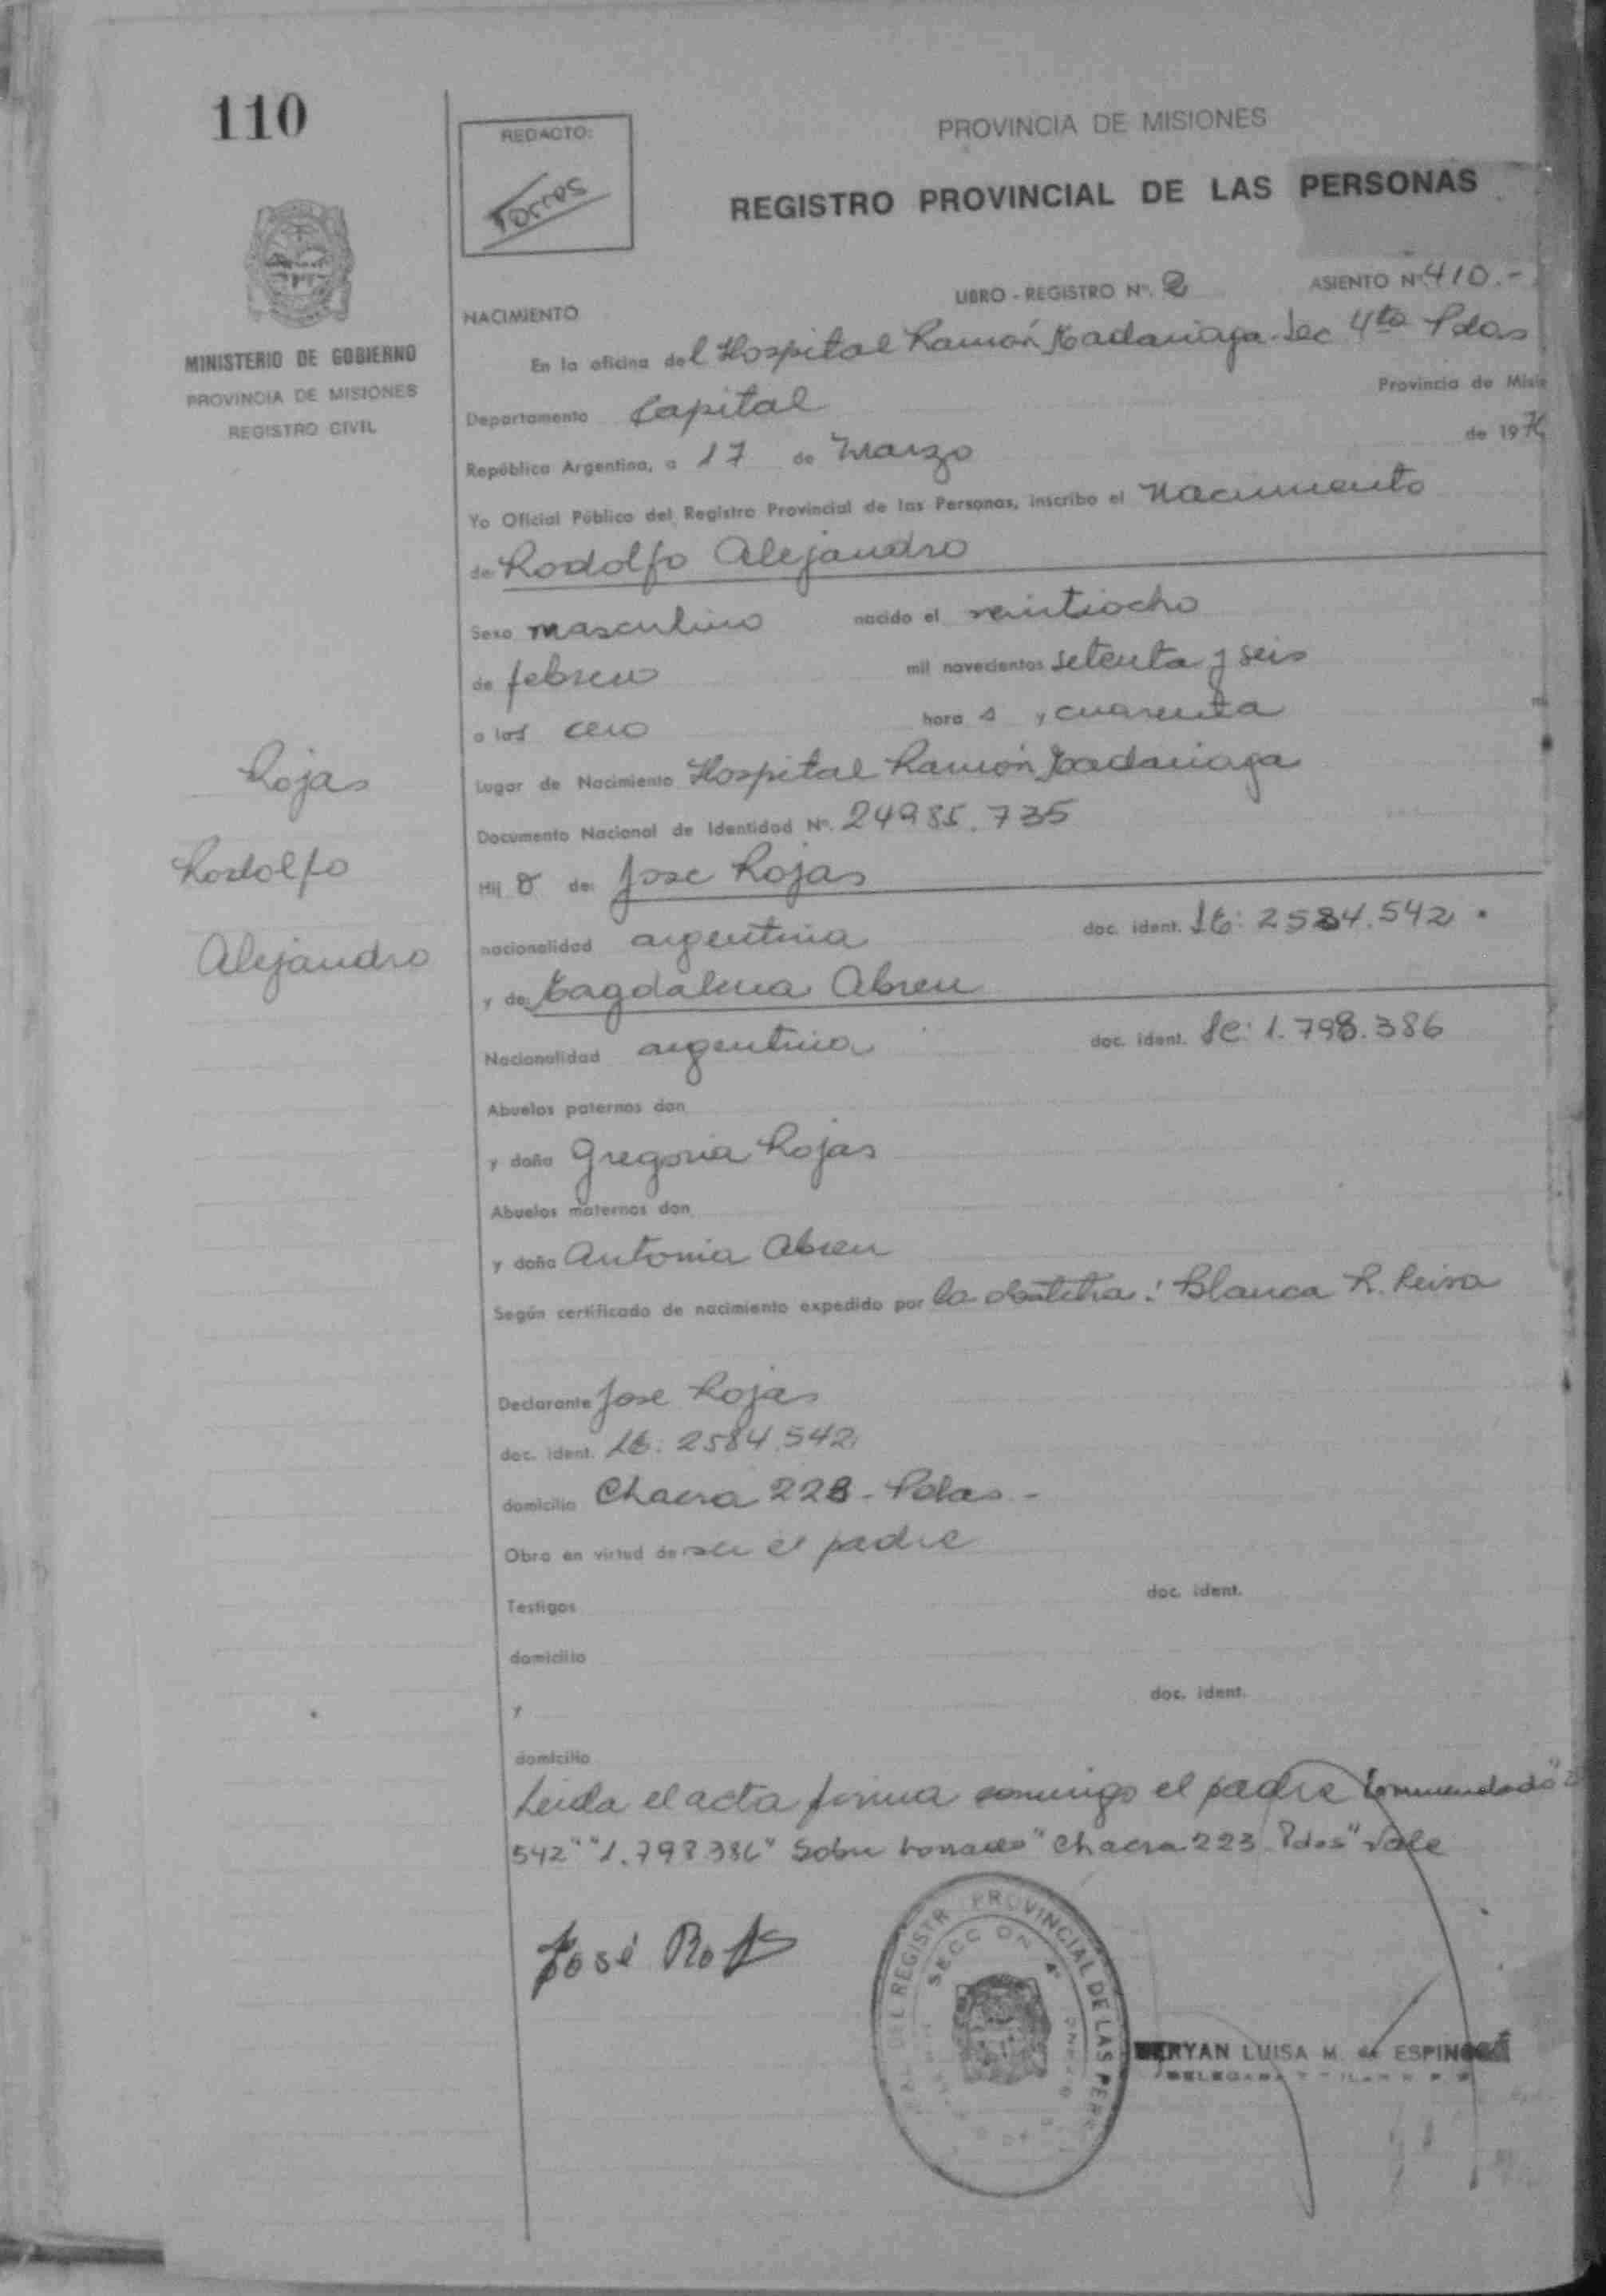 110
REDACTO:
Torres
PROVINCIA DE MISIONES
REGISTRO PROVINCIAL DE LAS PERSONAS
MINISTERIO DE GOBIERNO
PROVINCIA DE MISIONES
REGISTRO CIVIL
LIBRO - REGISTRO Nº. 2 ASIENTO Nº 410.-
NACIMIENTO
En la oficina del Hospital Ramón Madariaga. Sec. 4ta Pdas
Departamento Capital Provincia de Misio
República Argentina, a 17 de Marzo de 1976
Yo Oficial Público del Registro Provincial de las Personas, inscribo el Nacimiento
de: Rodolfo Alejandro
Sexo masculino nacido el veintiocho
de febrero mil novecientos setenta y seis
a las cero hora s y cuarenta
Lugar de Nacimiento Hospital Ramón Madariaga
Documento Nacional de Identidad Nº. 24985.735
Rojas
Rodolfo
Alejandro
Hij o de: Jose Rojas
nacionalidad argentina doc. ident. LE: 2584.542
y de: Magdalena Abreu
Nacionalidad argentina doc. ident. LC: 1.798.386
Abuelos paternos don
y doña Gregoria Rojas
Abuelos maternos don
y doña Antonia Abreu
Según certificado de nacimiento expedido por la obstetra: Blanca R.
Declarante Jose Rojas
doc. ident. LE: 2584.542
domicilio Chacra 223 - Pdas.-
Obra en virtud de ser el padre
Testigos doc. ident.
domicilio
y doc. ident.
domicilio
Leida el acta firma conmigo el padre enmendado"
542" "1.798.386" Sobre borrado "Chacra 223 Pdas" Vale
José Rojas
DEL REGISTR PROVINCIAL DE LAS PERS
SECCION 4ª
LUISA M. de ESPINOSA